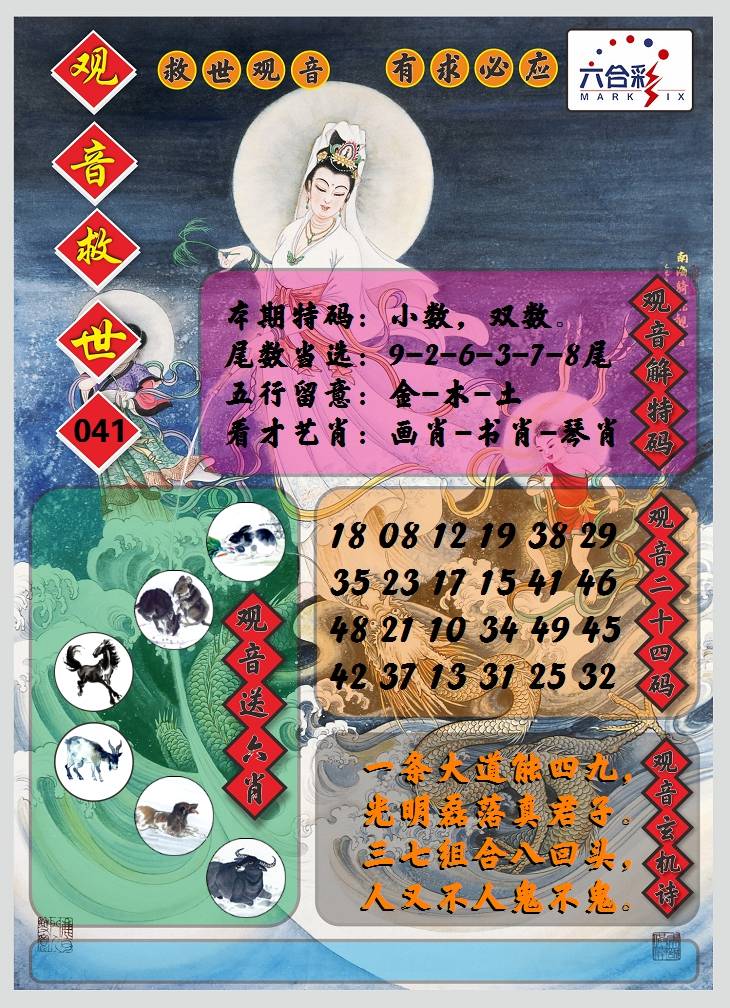 观音救世
041
救世观音 有求必应
六合彩
MARK SIX
本期特码：小数，双数。
尾数当选：9-2-6-3-7-8尾
五行留意：金-木-土
看才艺肖：画肖-书肖-琴肖
观音解特码
18 08 12 19 38 29
35 23 17 15 41 46
48 21 10 34 49 45
42 37 13 31 25 32
观音二十四码
观音送六肖
一条大道能四九，
光明磊落真君子。
三七组合八回头，
人又不人鬼不鬼。
观音玄机诗